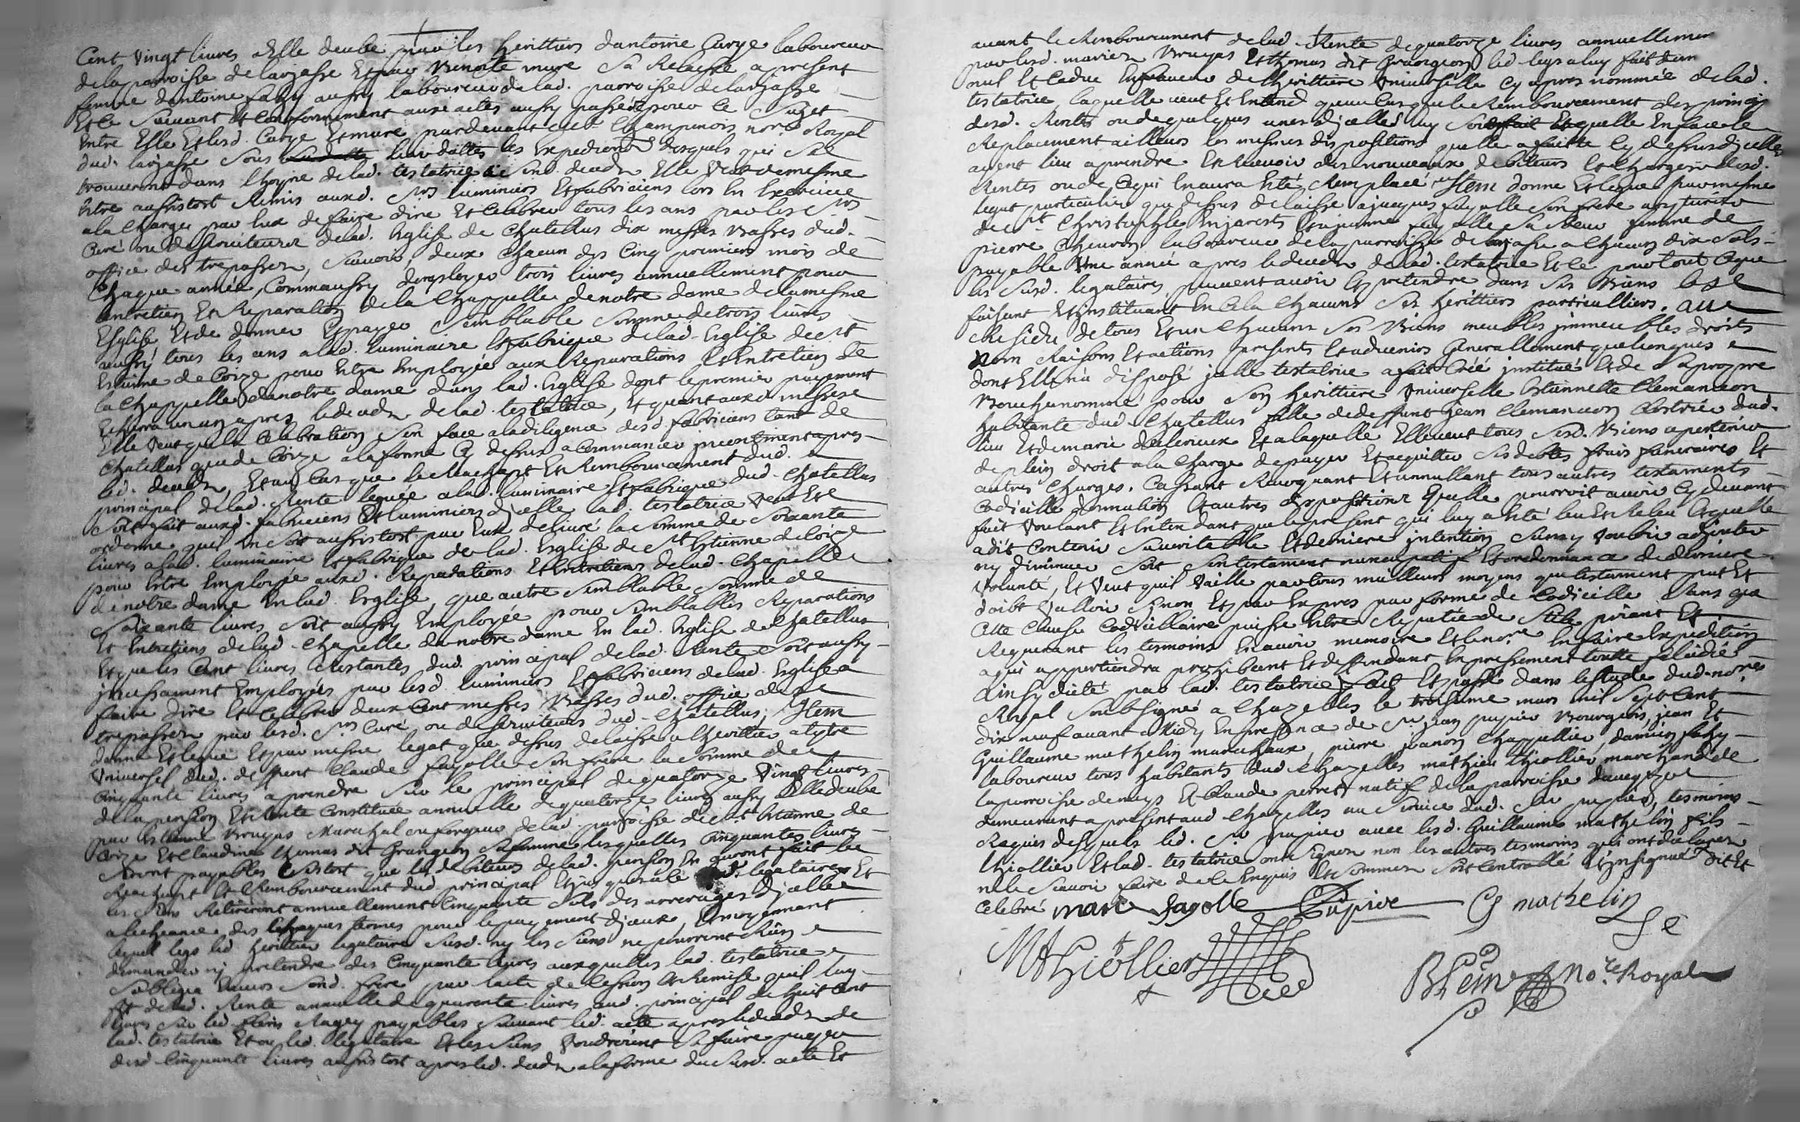 Cent vingt livres a Elle deube par les heritiers d'antoine Carge laboureur
de la parroisse de larjasse Et par Benoite mure Sa Relaissé a present
femme d'antoine fahy aussy laboureur de lad. parroisse de larjasse
Et ce suivant Et Conformement aux actes aussy passés pour ce Sujet
Entre Elle Et lesd. Carge Et mure pardevant Champinois nore Royal
dud. larjasse sous leurs dattes les Expeditions desquels qui se
trouveront dans l'hoyrie de lad. testatrice Elle Veut de mesme
Estre aussitost Remis auxd. Srs luminiers Et fabriciens lors En Exercice
a la Charge par Eux de faire dire Et Celebrer tous les ans par les Srs
Curé ou desserviteurs de lad. Eglise de Chatellus dix messes basses dud.
office des trepassez, Scavoir deux chacun des Cinq premiers mois de
Chaque année, Comm'aussy d'employer trois livres annuellement pour
Entretien Et Reparation de la Chappelle de notre dame de la mesme
Esglise Et de donner Et payer Semblable Somme de trois livres
aussy tous les ans a lad. luminaire Et fabrique de lad. Eglise de St
Estienne de Coize pour Estre Employée aux Reparations Et Entretien de
la Chappelle de notre dame dans lad. Eglise dont le premier payement
Echera un an apres le deceds de lad. testatrice, Et quant aux messes
Elle Veut que la Celebration S'en face a la diligence desd. fabriciens tant de
Chatellus que de Coize a la forme Cy dessus a Commancer
led. deceds, Et au Cas que le Rachapt Et Remboursement dud.
principal de lad. Rente leguée a lad. luminaire Et fabrique dud. Chatellus
Soit fait auxd. fabriciens Et luminiers d'icelle, lad. testatrice Veut Et
ordonne qu'il En Soit aussitost par Eux delivré la Somme de Soixante
livres a lad. luminaire Et fabrique de lad. Esglise de St Etienne de Coize
pour Estre Employée auxd. Reparations Et Entretiens de lad. Chapelle
de notre dame En lad. Esglise, que autre Semblable Somme de
Soixante livres Soit aussy Employée pour Semblables Reparations
Et Entretiens de lad. Chapelle de notre dame En lad. Eglise de Chatellus
Et que les Cent livres Restantes dud. principal de lad. Rente Soit aussy
incessament Employées par lesd. luminiers Et fabriciens de lad. Esglise a
faire dire Et Celebrer deux Cent messes basses dud. office des
trepassez par lesd. Srs Curé ou desserviteurs dud. Chatellus; Item
donne Et legue Et par mesme legat que dessus delaisse a l'heritier a tytre
Universel dud. deffunt Claude fayolle Son frere la Somme de
Cinquante livres a prendre Sur le principal de quatorze Vingt livres
de la pension Et Rente Constituée annuelle de quatorze livres aussy a Elle deube
par Bruyas Marechal en forgeur de lad. parroisse de St Etienne de
Coize Et Claudine thomas dit Grangeon lesquelles Cinquantes livres
Seront payables Sitost que les debiteurs de lad. pension En auront fait le
Rachapt Et Remboursement dud. principal Et jusques a ce led. legataire Et
les siens Retireront annuellement Cinquante Sols des arrerages d'icelle
a l'echeance des termes pour le payement d'iceux Et moyennant
lequel legs led. heritier legataire Susd. ny les Siens ne pourront Rien
demander ny pretendre des Cinquante livres auxquelles lad. testatrice
s'obligea Envers Sond. frere par l'acte de Cession Et Remise qu'il luy
fit de lad. Rente annuelle de quarente livres aud. principal de huit cent
livres payables Suivant led. acte apres le deceds de
lad. testatrice Et ou led. legataire Et les Siens Voudroient Se faire payer
desd. Cinquante livres aussitost apres led. deceds a la forme du Susd. acte Et
avant le Remboursement de lad. Rente de quatorze livres annuellement
par lesd. mariez Bruyas Et thomas dit Grangeon led. legs a luy fait
nul Et Caduc En faveur de l'heritiere Universelle Cy apres nommée de lad.
testatrice, laquelle veut Et Entend qu'en Cas que le Remboursement des principaux
desd. Rentes ou de quelques unes d'icelles luy Soit fait Et qu'elle En face le
Replacement ailleurs les mesmes dispositions qu'elle a faitte Cy dessus d'icelles
ayent lieu a prendre Et Recevoir des nouveaux debiteurs Et Chargés desd.
Rentes ou de Ce qui En aura Eté Remplacé; Item donne Et legue par mesme
legat particulier que dessus delaisse a jacques fayolle Son frere
de St Christophle En jarest Et a jeanne fayolle Sa Seur femme de
pierre Cheuron laboureur de la parroisse de larjasse a Chacun dix Sols
payable Une année apres le deceds de lad. testatrice Et Ce pour tout Ce que
les Susd. legataires peuvent avoir Et pretendre dans Ses Biens les
faisant Et instituant En Cela Chacun Ses heritiers particulliers. au
Residu de tous Et un Chacuns Ses Biens meubles jmmeubles droits
nom Raisons Et actions presents Et advenirs Generallement quelconques
dont Elle n'a disposé jcelle testatrice a fait Créé institué Et de Sa propre
Bouche nommé pour Son heritiere Universelle Etiennette Clemancon
habitante dud. Chatellus fille de deffunt Jean Clemancon dud.
lieu Et de marie Delerieux Et a laquelle Elle veut tous Sesd. Biens apertenir
de plein droit a la Charge de payer Et acquitter Ses debtes frais funeraires Et
autres Charges. Cassant Revoquant Et annullant tous autres testaments
Codicille donnation Et autres dispositions qu'elle pourroit avoir Cy devant
fait Voulant Et Entendant que le present qui luy a Eté leu Et Releu Et qu'elle
a dit Contenir Sa veritable Et derniere intention Sans y Vouloir adjouter
ny diminuer Soit Son testament nuncupatif Et ordonnance de derniere
Volonté, Et Veut qu'il Vaille par tous meilleurs moyens que testament peut Et
doibt Valloir Sinon Et par Expres par forme de Codicille Sans que
Cette Clause Codicillaire puisse Estre Reputée de Stile priant Et
Requerant les tesmoins En avoir memoire Et le nore En faire Expedition
a qui appartiendra prohibant Et deffendant Expressement toutte
Ainsy dicté par lad. testatrice fait Et passé dans l'estude dud. nore
Royal Soubsigné a Chazelles le troisieme mars mil Sept Cent
dix neuf avant Midy En presence de Sr jean pupier Bourgeois, jean Et
Guillaume mathelin marechaux pierre Chapellier, damien fahy
laboureur tous habitants dud. Chazelles mathieu thiollier marchand de
la parroisse de meys Et Claude perret natif de la parroisse
demeurant a present aud. Chazelles au Service dud. Sr pupier, tesmoins
Requis desquels led. Sr pupier avec lesd. Guillaume mathelin
thiollier Et lad. testatrice ont Signez non les autres tesmoins qui ont declarez
ne le Scavoir faire de ce Enquis Et Sommez Soit Controllé Et insignué dit Et
Celebré marie fayolle Pupier G mathelin
M thiollier
Blein nore Royal